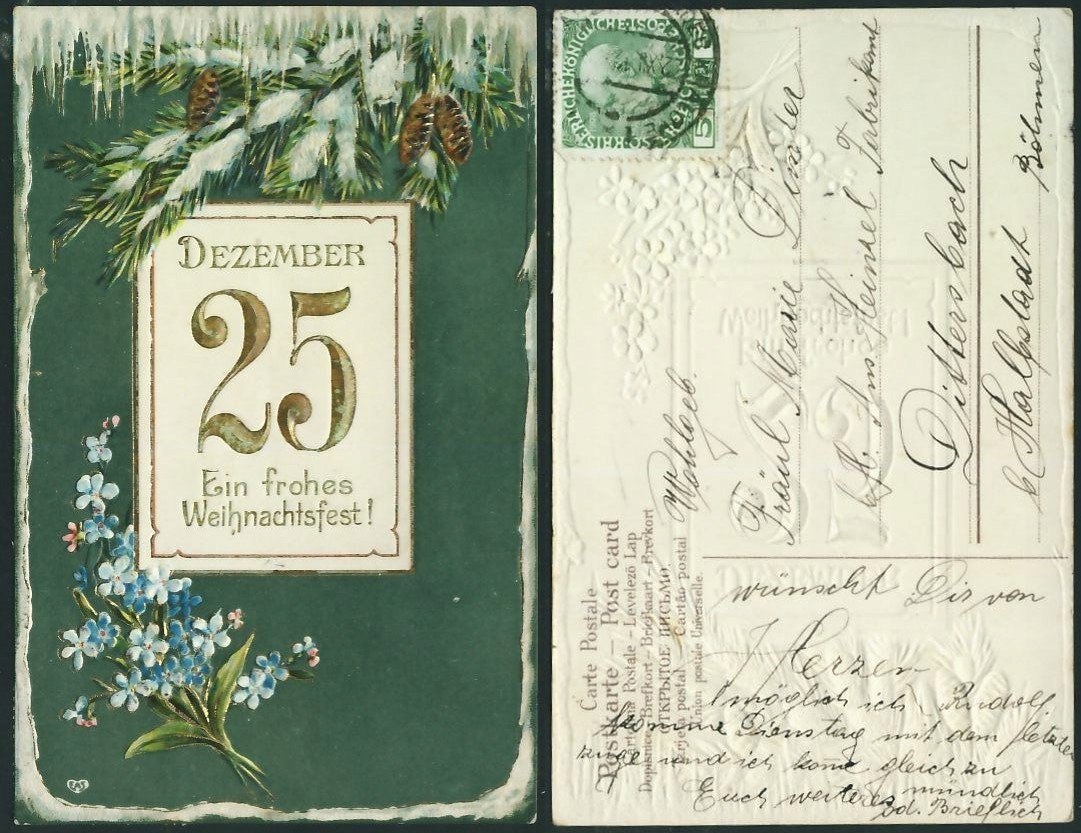 DEZEMBER
25
Ein frohes
Weihnachtsfest!
EAS
KAISERLICHE KÖNIGLICHE
5
Carte Postale
Postkarte — Post card
Postale - Levelező Lap
Dopisnice - Brefkort - Briefkaart - Brevkort
ОТКРЫТОЕ ПИСЬМО.
Tarjeta postal Cartão postal
Union postale Universelle.
Wohlgeb.
Fräul Marie
Heinzel Fabrikant
Dittersbach
b/ Halbstadt Böhmen
wünscht Dir von
Herzen
möglich ich Rudolf
komme Dienstag mit dem letzten
zuge und ich kome gleich zu
Euch weiteres mündlich
od. Brieflich